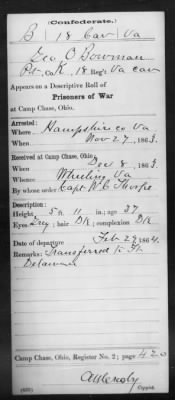 (Confederate.)
B | 18 Cav | Va
Geo O Bowman
Pvt, Co K, 18 Reg't Va cav
Appears on a Descriptive Roll of
Prisoners of War
at Camp Chase, Ohio.
Arrested:
Where Hampshire co Va
When Nov 27, 1863
Received at Camp Chase, Ohio:
When Dec 8, 1863
Where Wheeling Va
By whose order Capt W C Thorpe
Description:
Height, 5 ft. 11 in.; age 37
Eyes Grey; hair Dk; complexion Dk
Date of departure Feb 29, 1864.
Remarks: Transferred to Ft.
Delaware
Camp Chase, Ohio, Register No. 2; page 420
Copyist.